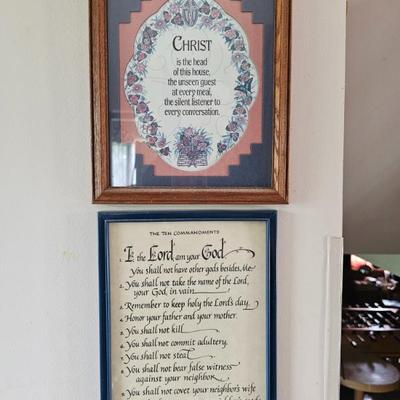 CHRIST
is the head
of this house,
the unseen guest
at every meal,
the silent listener to
every conversation.
THE TEN COMMANDMENTS
1. I, the Lord am your God
You shall not have other gods besides Me
2. You shall not take the name of the Lord,
your God, in vain
3. Remember to keep holy the Lord's day
4. Honor your father and your mother.
5. You shall not kill
6. You shall not commit adultery.
7. You shall not steal
8. You shall not bear false witness
against your neighbor
9. You shall not covet your neighbor's wife